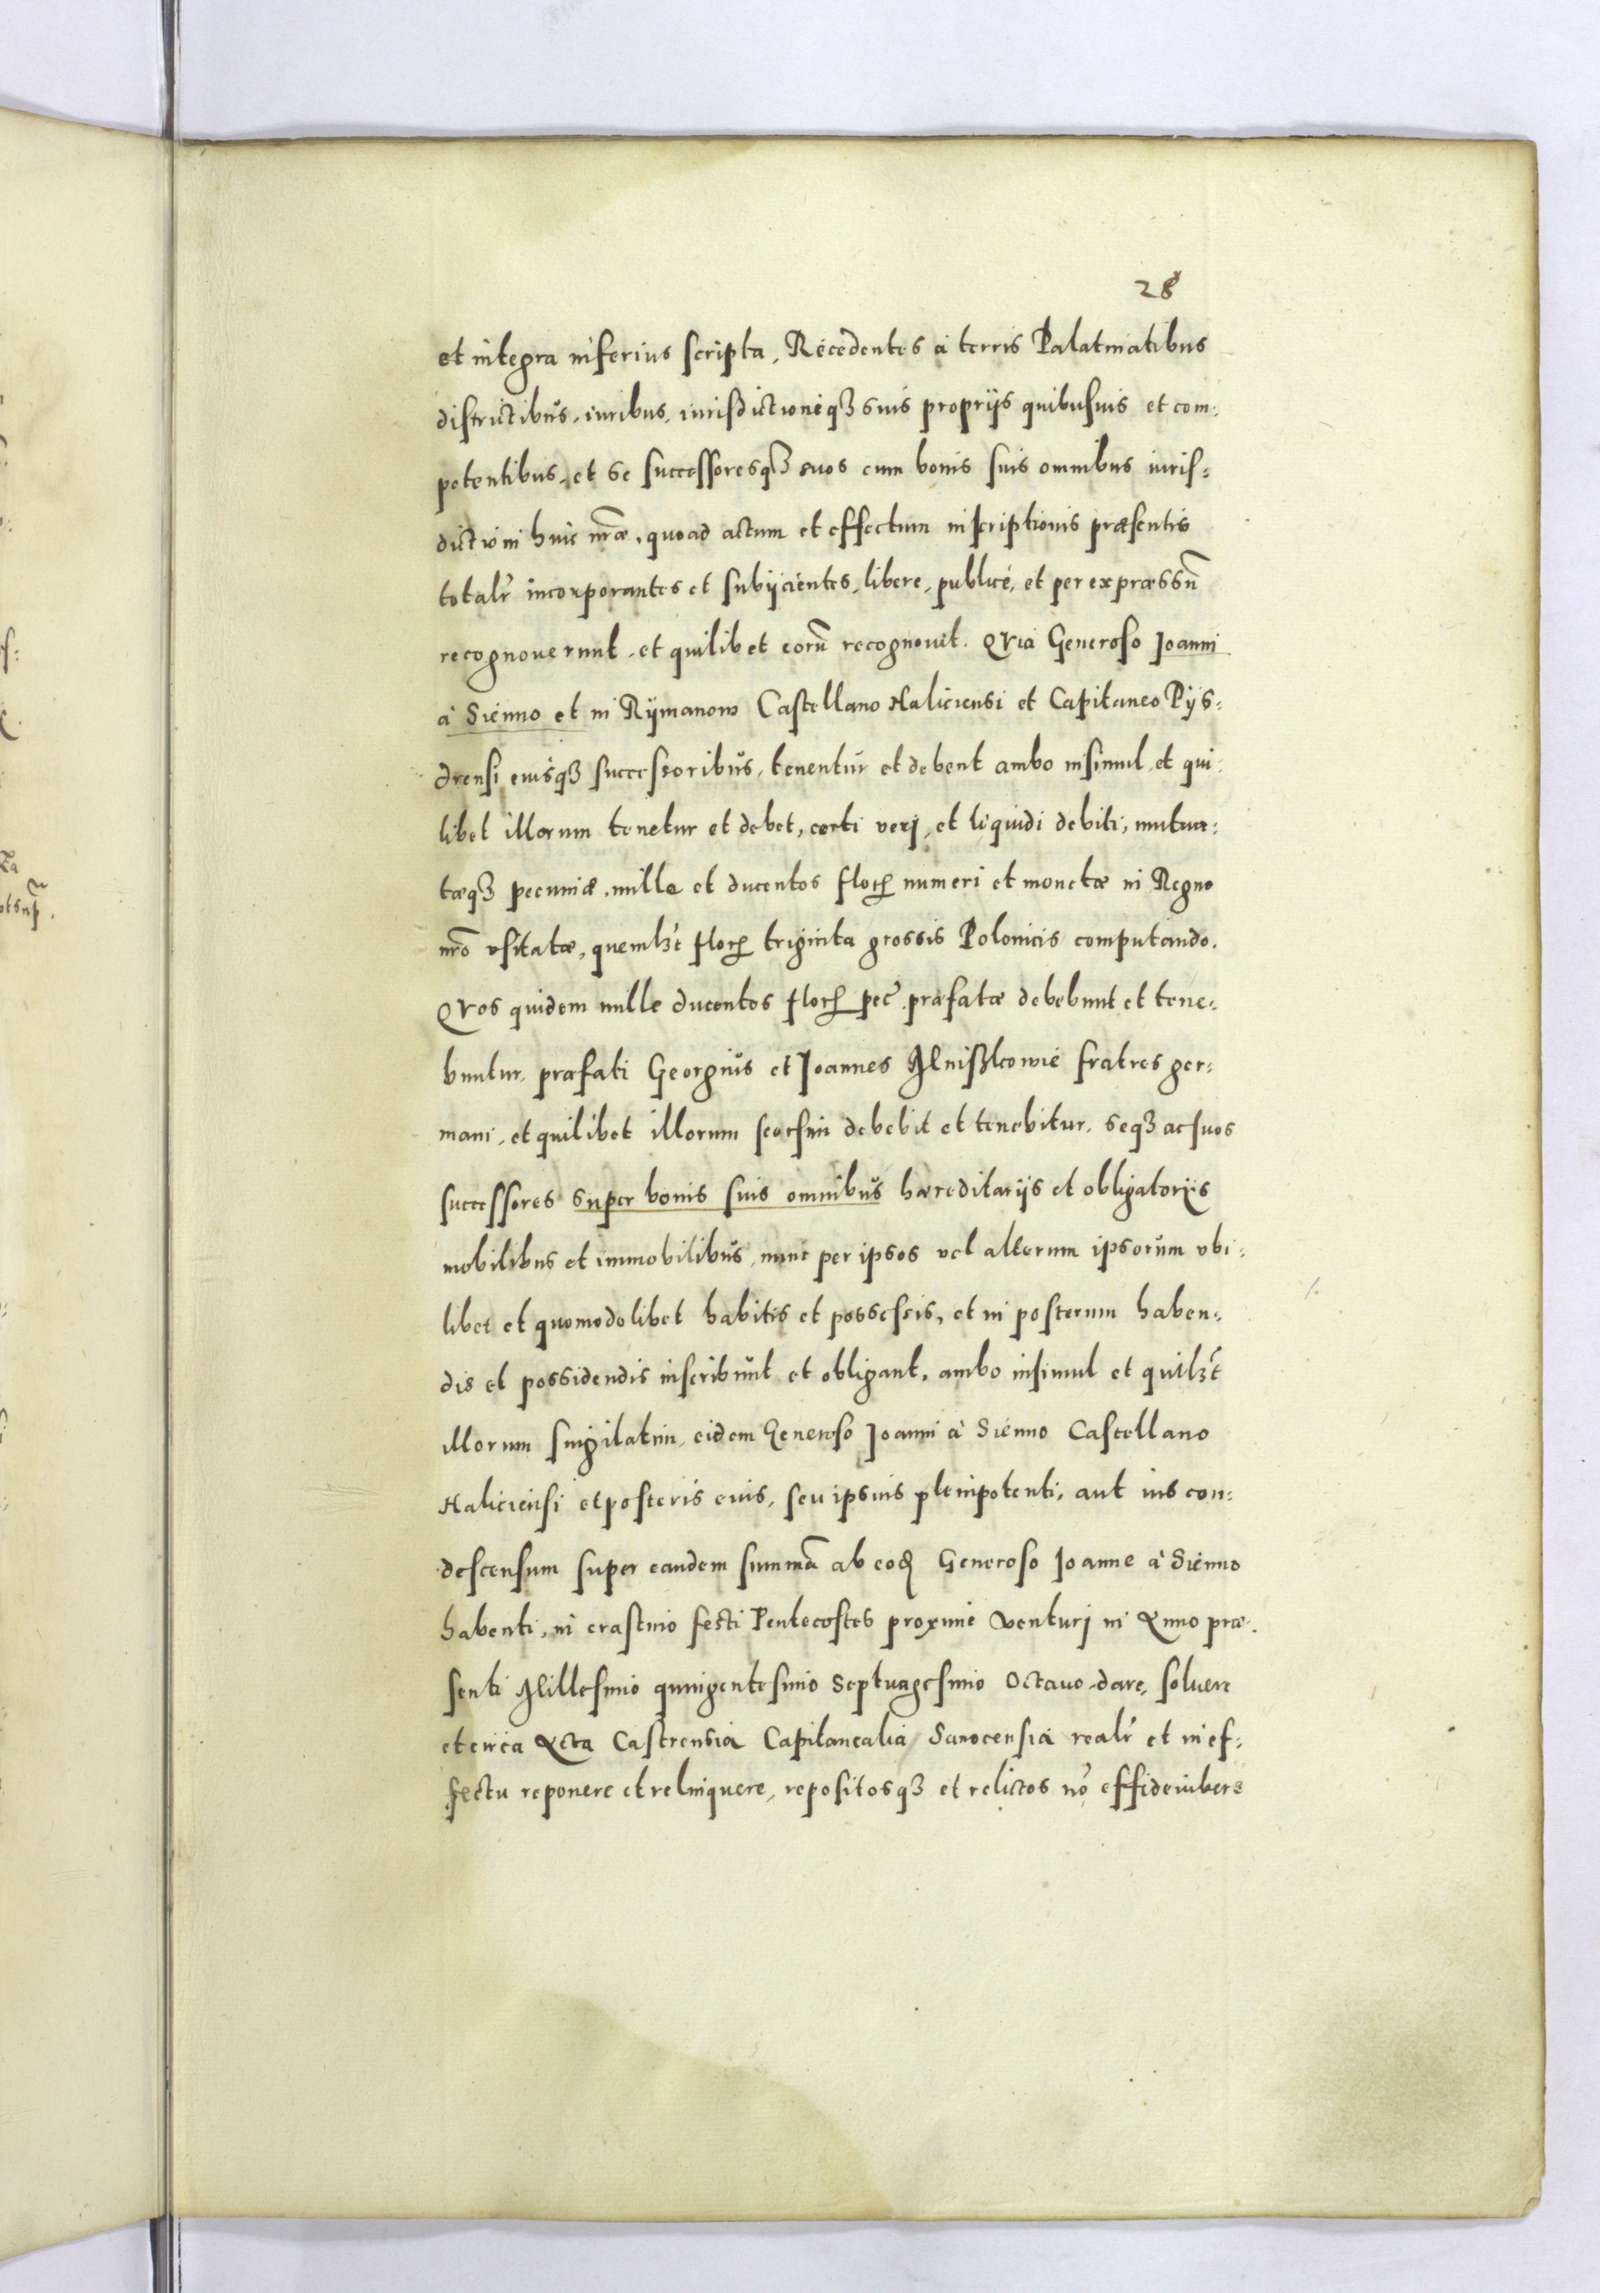 28
et integra inferius scripta, Recedentes a terris Palatinatibus
districtibus, iuribus, iurisdictioneqꝫ suis proprijs quibusuis et com:
petentibus, et se successoresqꝫ suos cum bonis suis omnibus iuris:
dictioni huic nr̃æ, quoad actum et effectum inscriptionis præsentis
totalr̃ incorporantes et subijcientes, libere, publicé, et per expræssũ
recognouerunt, et quilibet eorũ recognouit. Qvia Generoso Joanni
à Sienno et in Rÿmanow Castellano Haliciensi et Capitaneo Pÿs:
drensi eiusqꝫ successoribus, tenentur et debent ambo insimul, et qui:
libet illorum tenetur et debet, certi veri, et liquidi debiti, mutua:
tæqꝫ pecuniæ, mille et ducentos floꝝ numeri et monetæ in Regno
nr̃o vsitatæ, quemlꝫt floꝝ triginta grossis Polonicis computando.
Qvos quidem mille ducentos floꝝ pec̃ præfatæ debebunt et tene:
buntur, præfati Georgius et Joannes fratres ger:
mani, et quilibet illorum seorsim debebit et tenebitur, seqꝫ ac suos
successores super bonis suis omnibus hæreditarijs et obligatorijs
mobilibus et immobilibus, nunc per ipsos vel alterum ipsorum vbi:
libet et quomodolibet habitis et possessis, et in posterum haben:
dis et possidendis inscribunt et obligant, ambo insimul et quilꝫt
illorum singilatim, eidem Generoso Joanni à Sienno Castellano
Haliciensi et posteris eius, seu ipsius plenipotenti, aut ius con:
descensum super eandem summã ab eod̃ Generoso Joanne à Sienno
habenti, in crastino festi Pentecostes proxime venturj in Anno præ:
senti Millesimo quingentesimo Septuagesimo Octauo, dare, soluere
et circa Acta Castrensia Capitanealia Sanocensia realr̃ et in ef:
fectu reponere et relinquere, repositosqꝫ et relictos nõ